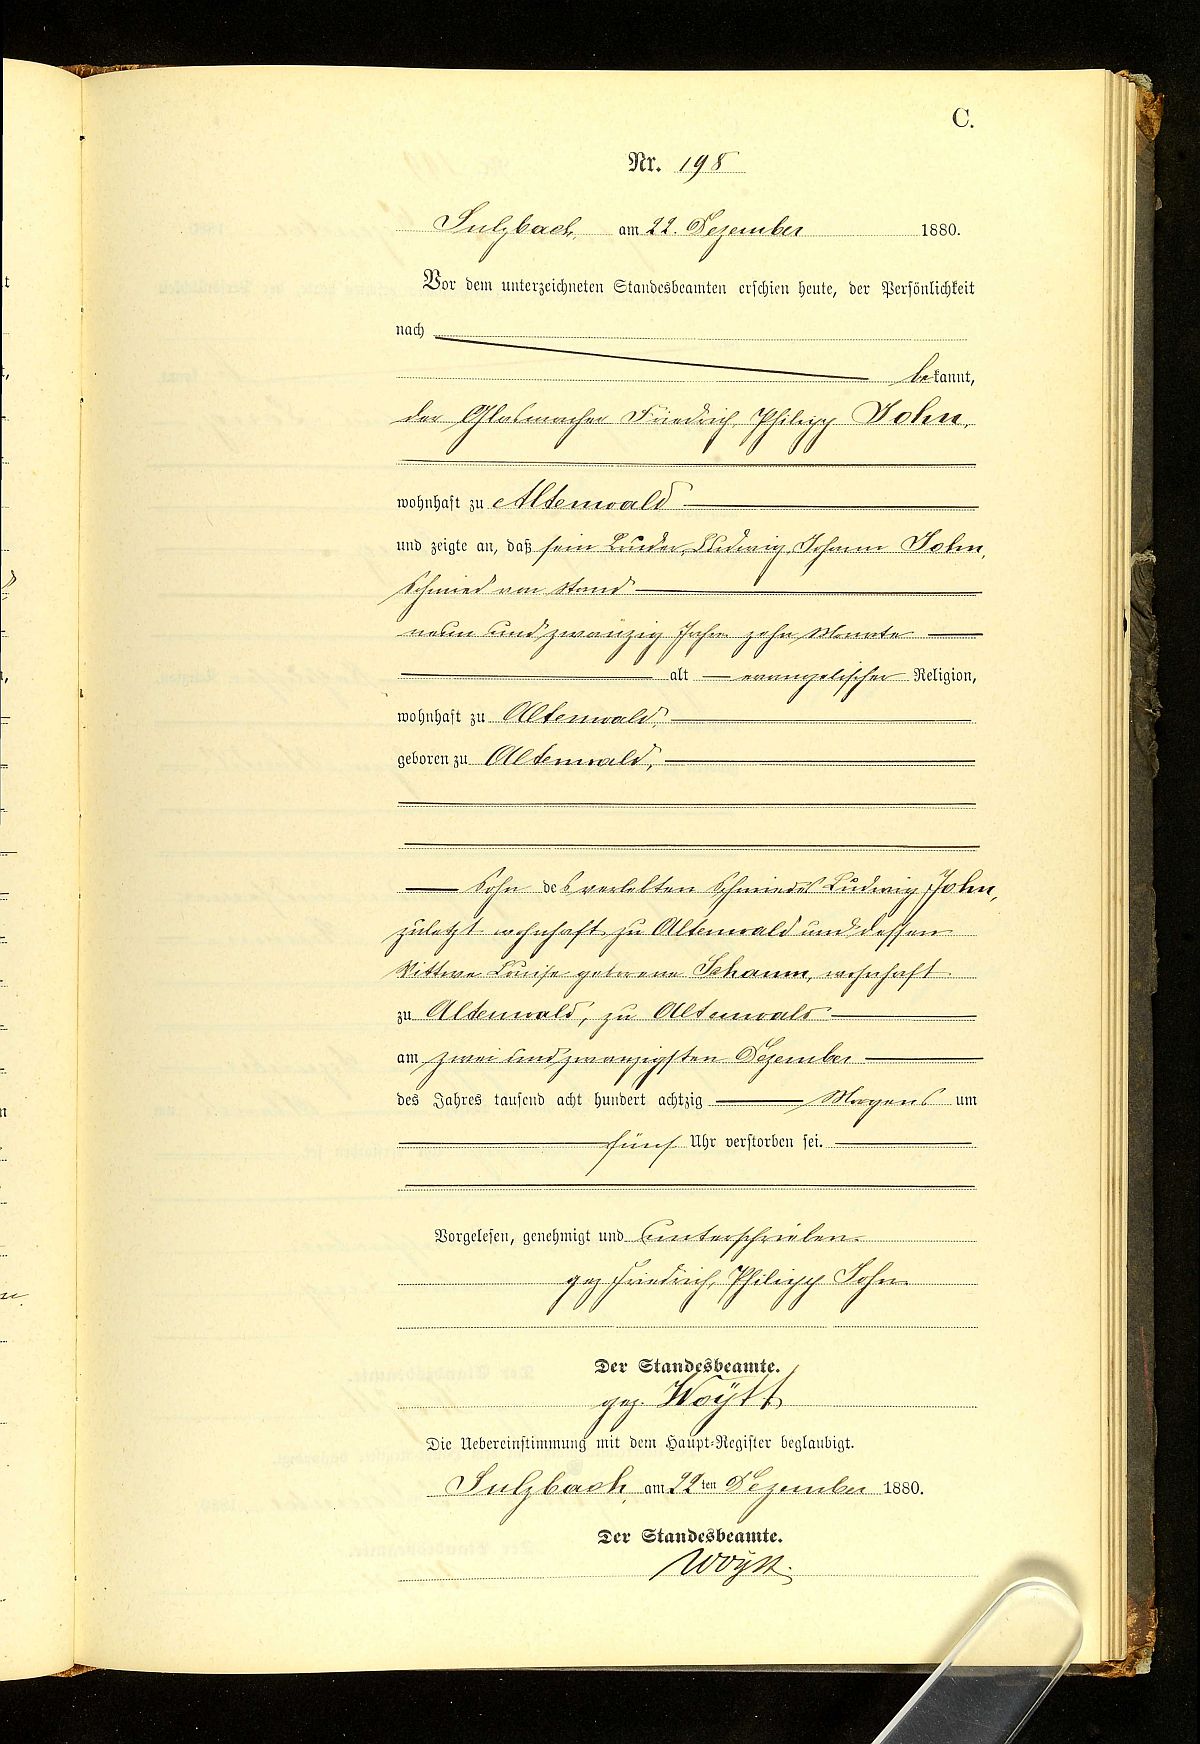 C.
Nr. 198
Sulzbach, am 22. Dezember 1880.
Vor dem unterzeichneten Standesbeamten erschien heute, der Persönlichkeit
nach
bekannt,
der Glasmacher Friedrich Philipp John,
wohnhaft zu Altenwald
und zeigte an, daß sein Bruder, Ludwig Johann John,
Schmied von Stand
neun und zwanzig Jahre zehn Monate
alt evangelischer Religion,
wohnhaft zu Altenwald,
geboren zu Altenwald,
Sohn des verlebten Schmiedes Ludwig John,
zuletzt wohnhaft zu Altenwald und dessen
Wittwe Luise geborene Schaum, wohnhaft
zu Altenwald, zu Altenwald
am zwei und zwanzigsten Dezember
des Jahres tausend acht hundert achtzig Morgens um
fünf Uhr verstorben sei.
Vorgelesen, genehmigt und unterschrieben
gez Friedrich, Philipp John
Der Standesbeamte.
gez. Woytt
Die Uebereinstimmung mit dem Haupt-Register beglaubigt.
Sulzbach, am 22ten Dezember 1880.
Der Standesbeamte.
Woytt.